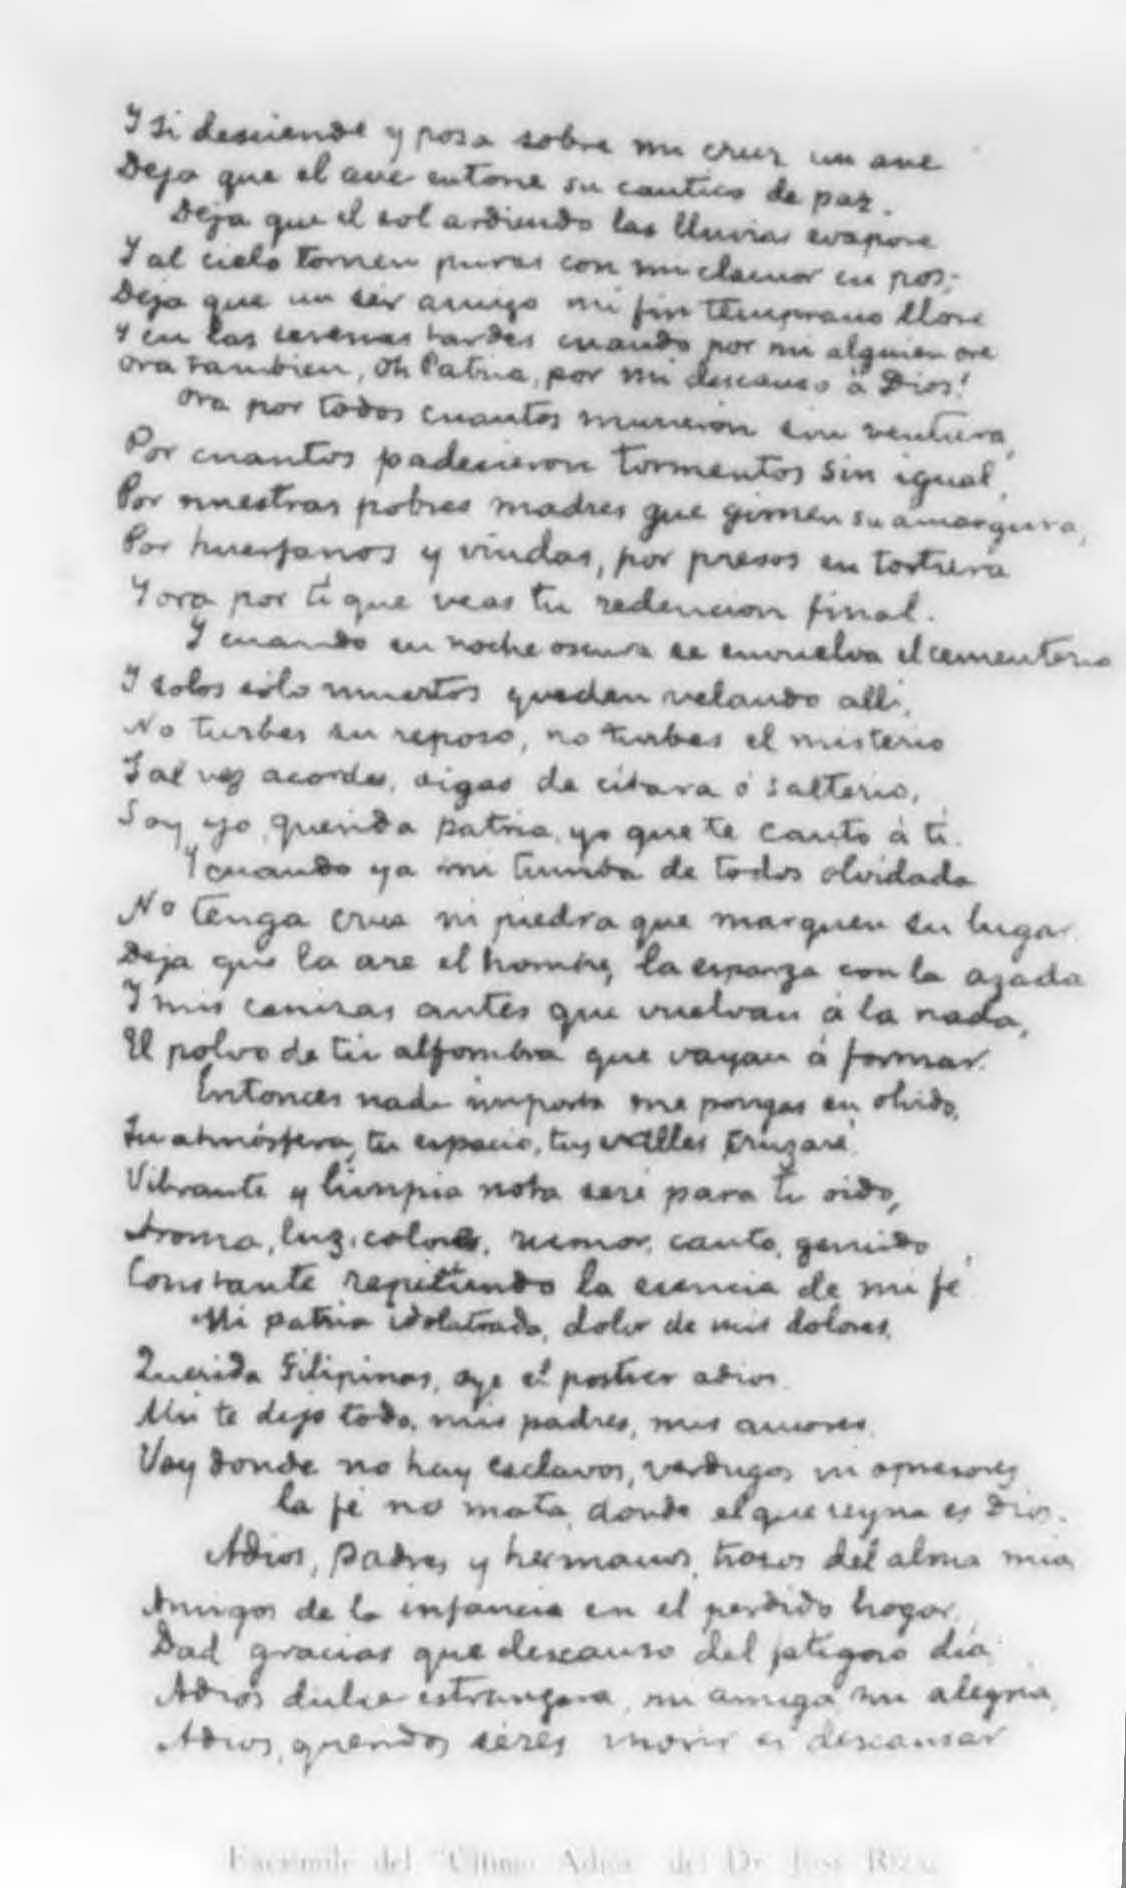 Y si desciende y posa sobre mi cruz un ave
Deja que el ave entone su cantico de paz.
Deja que el sol ardiendo las lluvias evapore
Y al cielo tornen puras con mi clamor en pos;
Deja que un sér amigo mi fin temprano llore
Y en las serenas tardes cuando por mi alguien ore
Ora tambien, Oh Patria, por mi descanso á Dios!
Ora por todos cuantos murieron sin ventura,
Por cuantos padecieron tormentos sin igual,
Por nuestras pobres madres que gimen su amargura,
Por huerfanos y viudas, por presos en tortura
Y ora por tí que veas tu redencion final.
Y cuando en noche oscura se envuelva el cementerio
Y solos sólo muertos queden velando allí,
No turbes su reposo, no turbes el misterio
Tal vez acordes, oigas de cítara ó salterio,
Soy yo, querida patria, yo que te canto á tí.
Y cuando ya mi tumba de todos olvidada
No tenga cruz ni piedra que marquen su lugar
Deja que la are el hombre, la esparza con la azada
Y mis cenizas antes que vuelvan á la nada,
El polvo de tu alfombra que vayan á formar.
Entonces nada importa me pongas en olvido,
Tu atmósfera, tu espacio, tus valles cruzaré
Vibrante y limpia nota seré para tu oido,
Aroma, luz, colores, rumor, canto, gemido
Constante repitiendo la esencia de mi fé
Mi patria idolatrada, dolor de mis dolores,
Querida Filipinas, oye el postrer adios.
Ahi te dejo todo, mis padres, mis amores.
Voy donde no hay esclavos, verdugos ni opresores
la fé no mata, donde el que reyna es Dios.
Adios, padres y hermanos, trozos del alma mia,
Amigos de la infancia en el perdido hogar,
Dad gracias que descanso del fatigoso día;
Adios dulce estrangera, mi amiga mi alegria,
Adios, queridos séres morir es descansar
Facsimile del "Ultimo Adios" del Dr. José Rizal